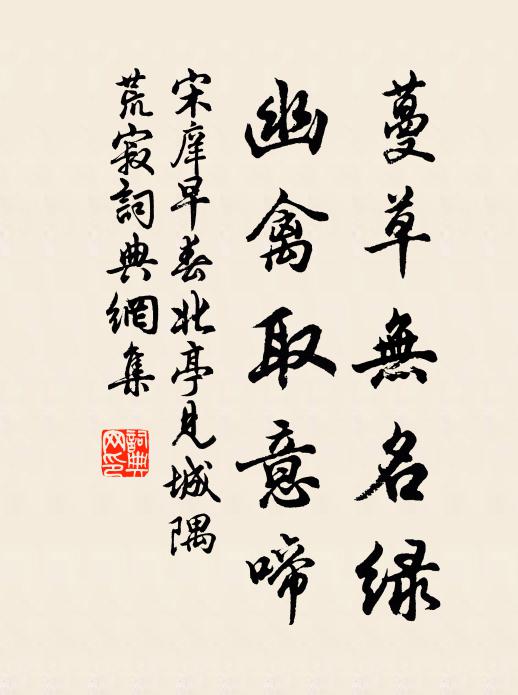 蔓草無名緑
幽禽取意啼
宋庠早春北亭見城隅
荒寂詞典網集
詞典網印